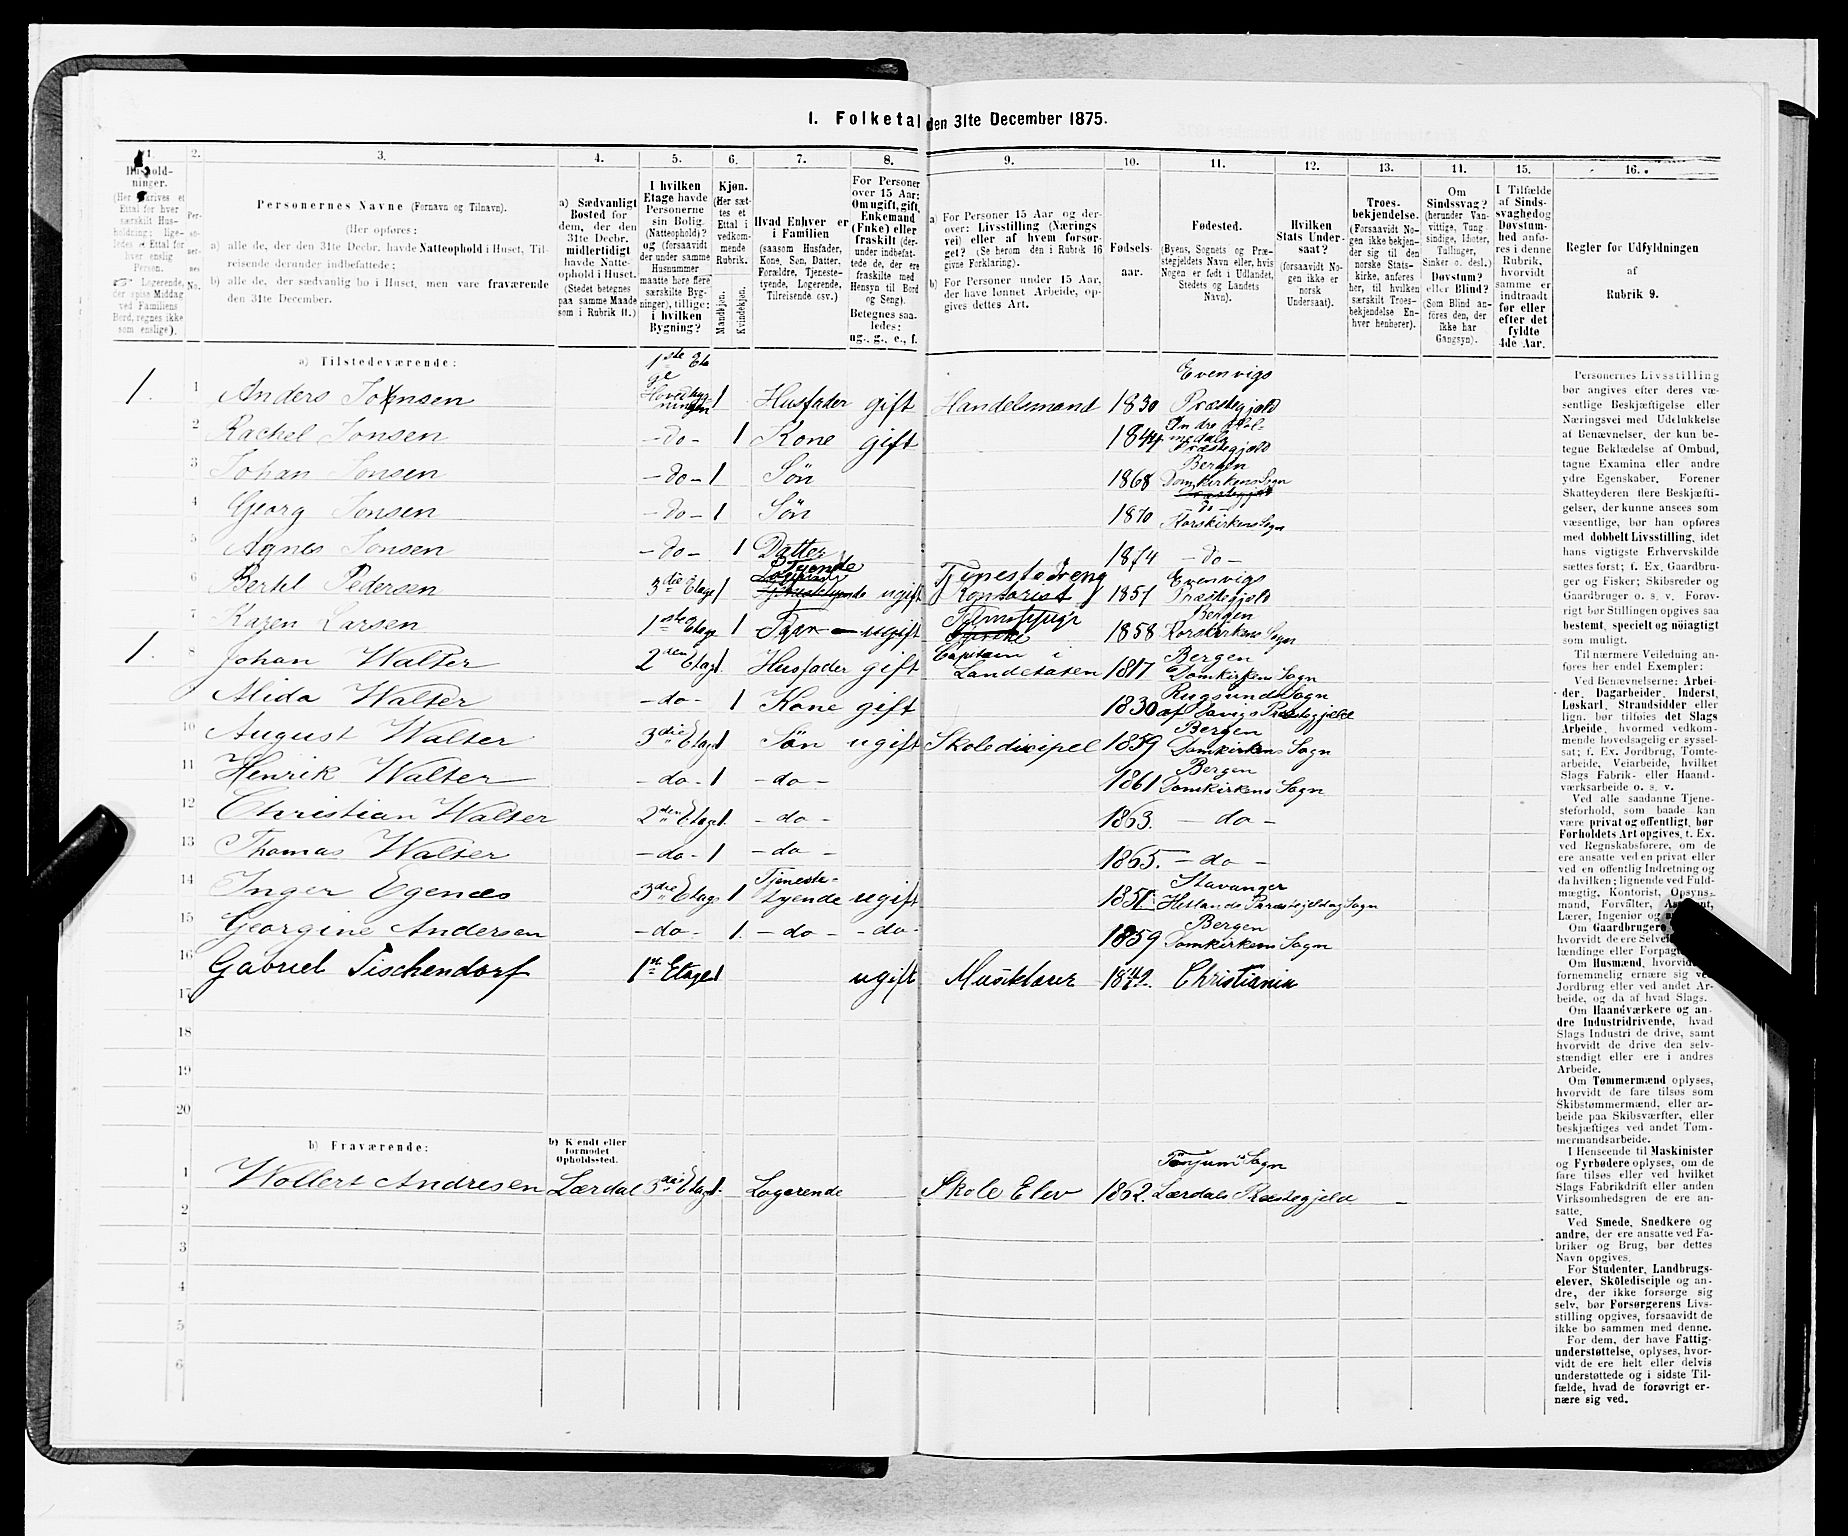 1. Folketal den 31te December 1875.
1. 2. 3. 4. 5. 6. 7. 8. 9. 10. 11. 12. 13. 14. 15. 16.
Personernes Navne (Fornavn og Tilnavn).
(Her opføres:
a) alle de, der den 31te Decbr. havde Natteophold i Huset, Til-
reisende derunder indbefattede;
b) alle de, der sædvanlig bo i Huset, men vare fraværende
den 31te December.
a) Sædvanligt
Bosted for
dem, der den
31te Decbr.
midlertidigt
havde Natte-
ophold i Huset.
(Stedet betegnes
paa samme Maade
som i Rubrik 11.)
I hvilken
Etage havde
Personerne
sin Bolig.
(Natteophold)?
og (forsaavidt
der under samme
Husnummer
maatte høre flere
særskilte Byg-
ninger), tillige:
i hvilken
Bygning?
Kjøn.
(Her sæt-
tes et
Ettal i
vedkom-
mende
Rubrik.
Mandkjøn.
Kvindekjøn.
Hvad Enhver er
i Familien
(saasom Husfader,
Kone, Søn, Datter,
Forældre, Tjeneste-
tyende, Logerende,
Tilreisende osv.)
For Personer
over 15 Aar:
Om ugift, gift,
Enkemand
(Enke) eller
fraskilt (der-
under indbefat-
tede de, der ere
fraskilte med
Hensyn til Bord
og Seng).
Betegnes saa-
ledes:
ug., g., e., f.
a) For Personer 15 Aar og der-
over: Livsstilling (Nærings
vei) eller af hvem forsør-
get? (Se herom den i Rubrik 16
givne Forklaring).
b) For Personer under 15 Aar,
der have lønnet Arbeide, op-
gives dettes Art.
Fødsels-
aar.
Fødested.
(Byens, Sognets og Præ-
stegjeldets Navn eller, hvis
Nogen er født i Udlandet,
Stedets og Landets
Navn).
Hvilken
Stats Under-
saat?
(forsaavidt No-
gen ikke er
norsk
Undersaat).
Troes-
bekjendelse.
(Forsaavidt No-
gen ikke bekjen-
der sig til den
norske Stats-
kirke, anføres
her, til hvilken
særskilt Troes-
bekjendelse En-
hver henhører).
Om
Sindssvag?
(herunder Van-
vittige, Tung-
sindige, Idioter,
Tullinger,
Sinker o. desl.)
Døvstum?
eller Blind?
(Som Blind an-
føres den, der
ikke har
Gangsyn).
I Tilfælde
af Sinds-
svaghed og
Døvstum-
hed anfø-
res i denne
Rubrik,
hvorvidt
samme er
indtraadt
før eller
efter det
fyldte
4de Aar.
Regler for Udfyldningen
af
Rubrik 9.
a) Tilstedeværende:
1. 1 Anders Jonsen 1ste Etage Hovedbygningen 1 Husfader gift Handelsmand 1830 Evenvigs Præstegjeld
2 Rachel Jonsen -do- 1 Kone gift 1844 Præstegjeld
3 Johan Jonsen -do- 1 Søn 1868 Bergen Domkirkens Sogn
4 Georg Jonsen -do- 1 Søn 1870 -do- Korskirkens Sogn
5 Agnes Jonsen -do- 1 Datter 1874 -do-
6 Bertel Pedersen 3die Etage 1 Tyende ugift Tjenestedreng Kontorist 1857 Evenvigs Præstegjeld
7 Karen Larsen 1ste Etage 1 ugift 1858 Bergen Korskirkens Sogn
1. 8 Johan Walter 2den Etage 1 Husfader gift Capitain i Landetaten 1817 Bergen Domkirkens Sogn
Alida Walter -do- 1 Kone gift 1830 Rugsunds Sogn af Davigs Præstegjeld
10 August Walter 3die Etage 1 Søn ugift Skoledisipel 1859 Bergen Domkirkens Sogn
11 Henrik Walter -do- 1 -do- 1861 Bergen Domkirkens Sogn
12 Christian Walter 2den Etage 1. -do- 1863. -do-
13 Thomas Walter -do- 1 -do- 1865. -do-
14 Inger Egenæs 3die Etage 1 Tjenestetyende ugift 1851 Stavanger Hetlands Præstegjeld og Sogn
15 Georgine Andersen -do- 1. -do- -do- 1859 Bergen Domkirkens Sogn
16 Gabriel Tischendorf 1st Etage 1 ugift Musiklærer 1842. Christiania
17
18
19
20
b) Fraværende:
b) Kendt eller
formodet
Opholdssted.
1 Wollert Andresen Lærdal 3die Etage 1. Logerende Skole Elev 1862. Tønjum Sogn Lærdals Præstegjeld
2
3
4
5
6
Personernes Livsstilling
bør angives efter deres væ-
sentlige Beskjæftigelse eller
Næringsvei med Udelukkelse
af Benævnelser, der kun be-
tegne Beklædelse af Ombud,
tagne Examina eller andre
ydre Egenskaber. Forener
Skatteyderen flere Beskjæfti-
gelser, der kunne ansees som
væsentlige, bør han opføres
med dobbelt Livsstilling, idet
hans vigtigste Erhvervskilde
sættes først; f. Ex. Gaardbru-
ger og Fisker; Skibsreder og
Gaardbruger o. s. v. Forøv-
rigt bør Stillingen opgives saa
bestemt, specielt og nøiagtigt
som muligt.
Til nærmere Veiledning an-
føres her endel Exempler:
Ved Benævnelserne: Arbei-
der, Dagarbeider, Inderst,
Løskarl, Strandsidder eller
lign. bør tilføies det Slags
Arbeide, hvormed vedkom-
mende hovedsagelig er syssel-
sat; f. Ex. Jordbrug, Tomte-
arbeide, Veiarbeide, hvilket
Slags Fabrik- eller Haand-
værksarbeide o. s. v.
Ved alle saadanne Tjene-
steforhold, som baade kan
være privat og offentligt, bør
Forholdets Art opgives, t. Ex.
ved Regnskabsførere, om de
ere ansatte ved en privat eller
ved en offentlig Indretning og
da hvilken; lignende ved Fuld-
mægtig, Kontorist, Opsyns-
mand, Forvalter,
Lærer, Ingeniør og
Om Gaardbrugere
hvorvidt de ere
lændinge eller
Om Husmænd,
fornemmelig ernære sig ved
Jordbrug eller ved andet Ar-
beide, og da af hvad Slags.
Om Haandværkere og an-
dre Industridrivende, hvad
Slags Industri de drive, samt
hvorvidt de drive den selv-
stændigt eller ere i andres
Arbeide.
Om Tømmermænd oplyses,
hvorvidt de fare tilsøs som
Skibstømmermænd, eller ar-
beide paa Skibsværfter, eller
beskjæftiges ved andet Tøm-
mermandsarbeide.
I Henseende til Maskinister
og Fyrbødere oplyses, om de
fare tilsøs eller ved hvilket
Slags Fabrikdrift eller anden
Virksomhedsgren de ere an-
satte.
Ved Smede, Snedkere og
andre, der ere ansatte ved Fa-
briker og Brug, bør dettes
Navn opgives.
For Studenter, Landbrugs-
elever, Skoledisciple og an-
dre, der ikke forsørge sig
selv, bør Forsørgerens Livs-
stilling opgives, forsaavidt de
ikke bo sammen med denne.
For dem, der have Fattig-
understøttelse, oplyses, hvor-
vidt de ere helt eller delvis
understøttede og i sidste Til-
fælde, hvad de forøvrigt er-
nære sig ved.